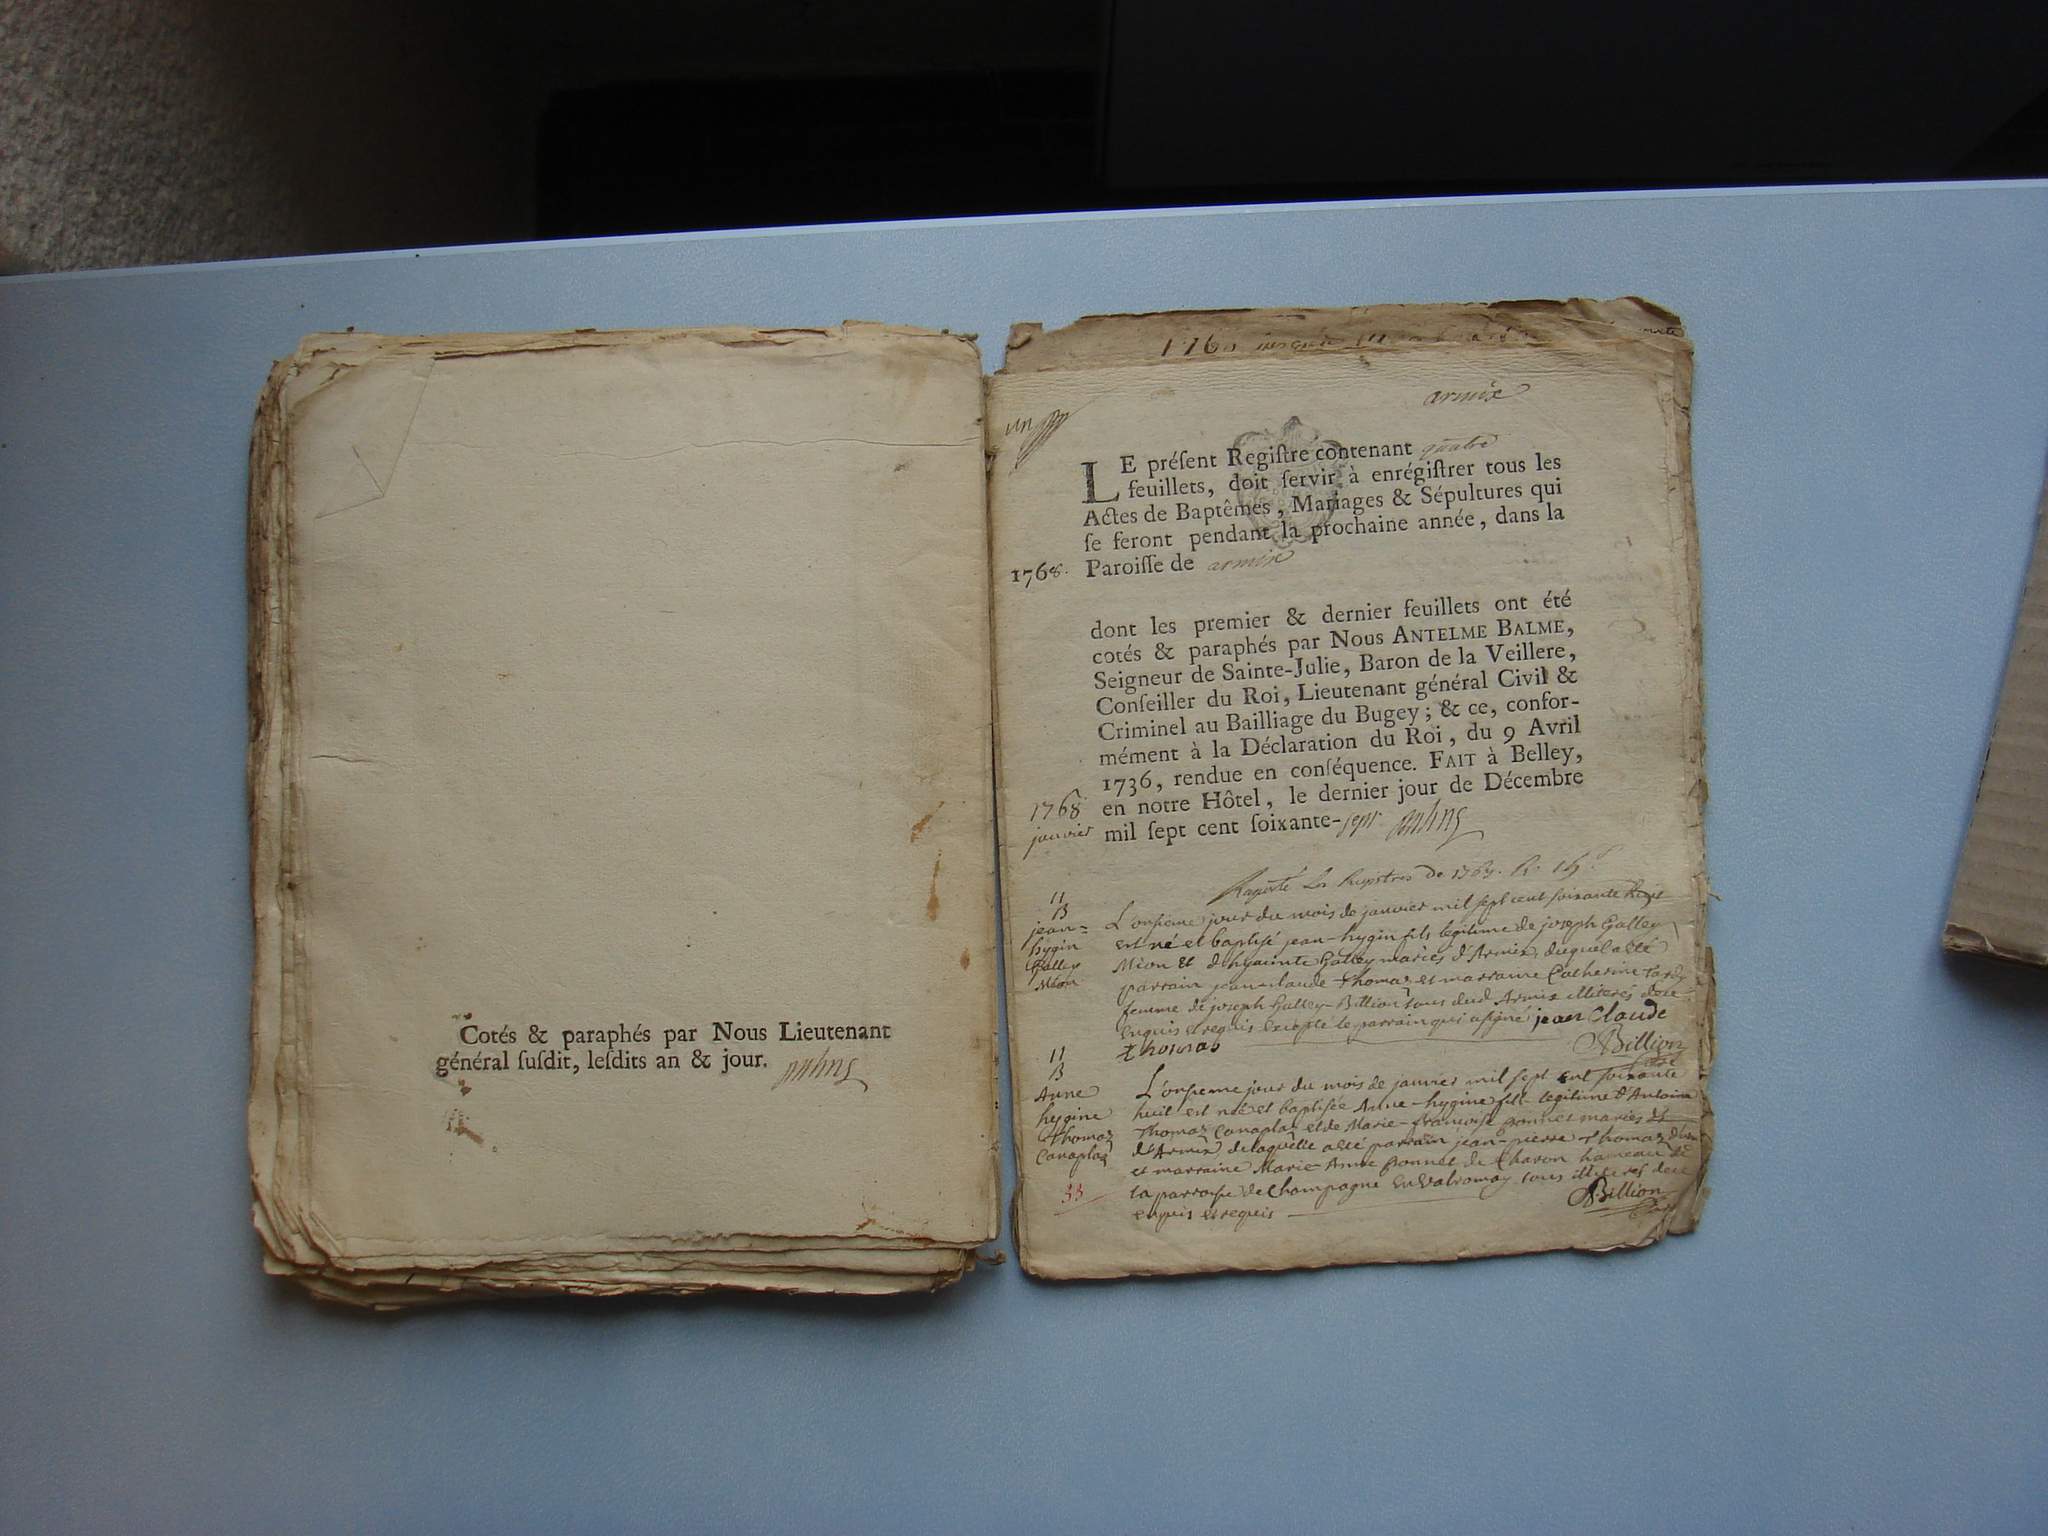 Cotés & paraphés par Nous Lieutenant
général ſuſdit, leſdits an & jour.
armix
un
LE préſent Regiſtre contenant quatre
feuillets, doit ſervir à enrégiſtrer tous les
Actes de Baptêmes, Mariages & Sépultures qui
ſe feront pendant la prochaine année, dans la
1768. Paroiſſe de armix
dont les premier & dernier feuillets ont été
cotés & paraphés par Nous ANTELME BALME,
Seigneur de Sainte-Julie, Baron de la Veillere,
Conſeiller du Roi, Lieutenant général Civil &
Criminel au Bailliage du Bugey; & ce, confor-
mément à la Déclaration du Roi, du 9 Avril
1736, rendue en conſéquence. FAIT à Belley,
en notre Hôtel, le dernier jour de Décembre
mil ſept cent ſoixante-sept
1768
janvier
11
B
jean=
hygin
Galley
Mion
L'onsieme jour du mois de janvier mil sept cent soixante huit
est né et baptisé jean-hygin fils legitime de joseph Galley
Mion et d'hyacinte Galley mariés d'Armix, duquel a été
parrain jean-claude thomaz et marraine Catherine tardy
femme de joseph Galley-Billion tous dud Armix illiterés de ce
enquis et requis excepté le parrain qui a signé jean Claude
thomas
Billion
11
B
Anne
hygine
Thomaz
Canaplaz
33
L'onsieme jour du mois de janvier mil sept cent soixante
huit est née et baptisée Anne-hygine fille legitime d'Antoine
Thomaz Canaplaz et de Marie-françoise Bonnet mariés
d'Armix, de laquelle a été parrain jean-pierre Thomaz
et marraine Marie-Anne Bonnet de Charon hameau de
la parroisse de Champagne en Valromay tous illiterés de ce
enquis et requis
Billion